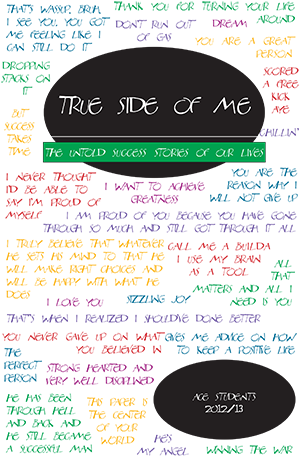 THAT'S WASSUP, BRUH,
I SEE YOU, YOU GOT
ME FEELING LIKE I
CAN STILL DO IT
THANK YOU FOR TURNING YOUR LIFE
AROUND
DON'T RUN OUT
OF GAS
DREAM
YOU ARE A GREAT
PERSON
DROPPING
STACKS ON
IT
SCORED
A FREE
KICK
AYE
BUT
SUCCESS
TAKES
TIME
CHILLIN'
TRUE SIDE OF ME
THE UNTOLD SUCCESS STORIES OF OUR LIVES
I NEVER THOUGHT
I'D BE ABLE TO
SAY I'M PROUD OF
MYSELF
I WANT TO ACHIEVE
GREATNESS
YOU ARE THE
REASON WHY I
WILL NOT GIVE UP
I AM PROUD OF YOU BECAUSE YOU HAVE GONE
THROUGH SO MUCH AND STILL GOT THROUGH IT ALL
I TRULY BELIEVE THAT WHATEVER
HE SETS HIS MIND TO THAT HE
WILL MAKE RIGHT CHOICES AND
WILL BE HAPPY WITH WHAT HE
DOES
CALL ME A BUILDA
I USE MY BRAIN
AS A TOOL
ALL
THAT
MATTERS AND ALL I
NEED IS YOU
I LOVE YOU
SIZZLING JOY
THAT'S WHEN I REALIZED I SHOULD'VE DONE BETTER
YOU NEVER GAVE UP ON WHAT
YOU BELIEVED IN
GIVES ME ADVICE ON HOW
TO KEEP A POSITIVE LIFE
THE
PERFECT
PERSON
STRONG HEARTED AND
VERY WELL DISCIPLINED
ACE STUDENTS
2012/13
HE HAS BEEN
THROUGH HELL
AND BACK AND
HE STILL BECAME
A SUCCESSFUL MAN
THIS PAPER IS
THE CENTER
OF YOUR
WORLD
HE'S
MY ANGEL
WINNING THE WAR